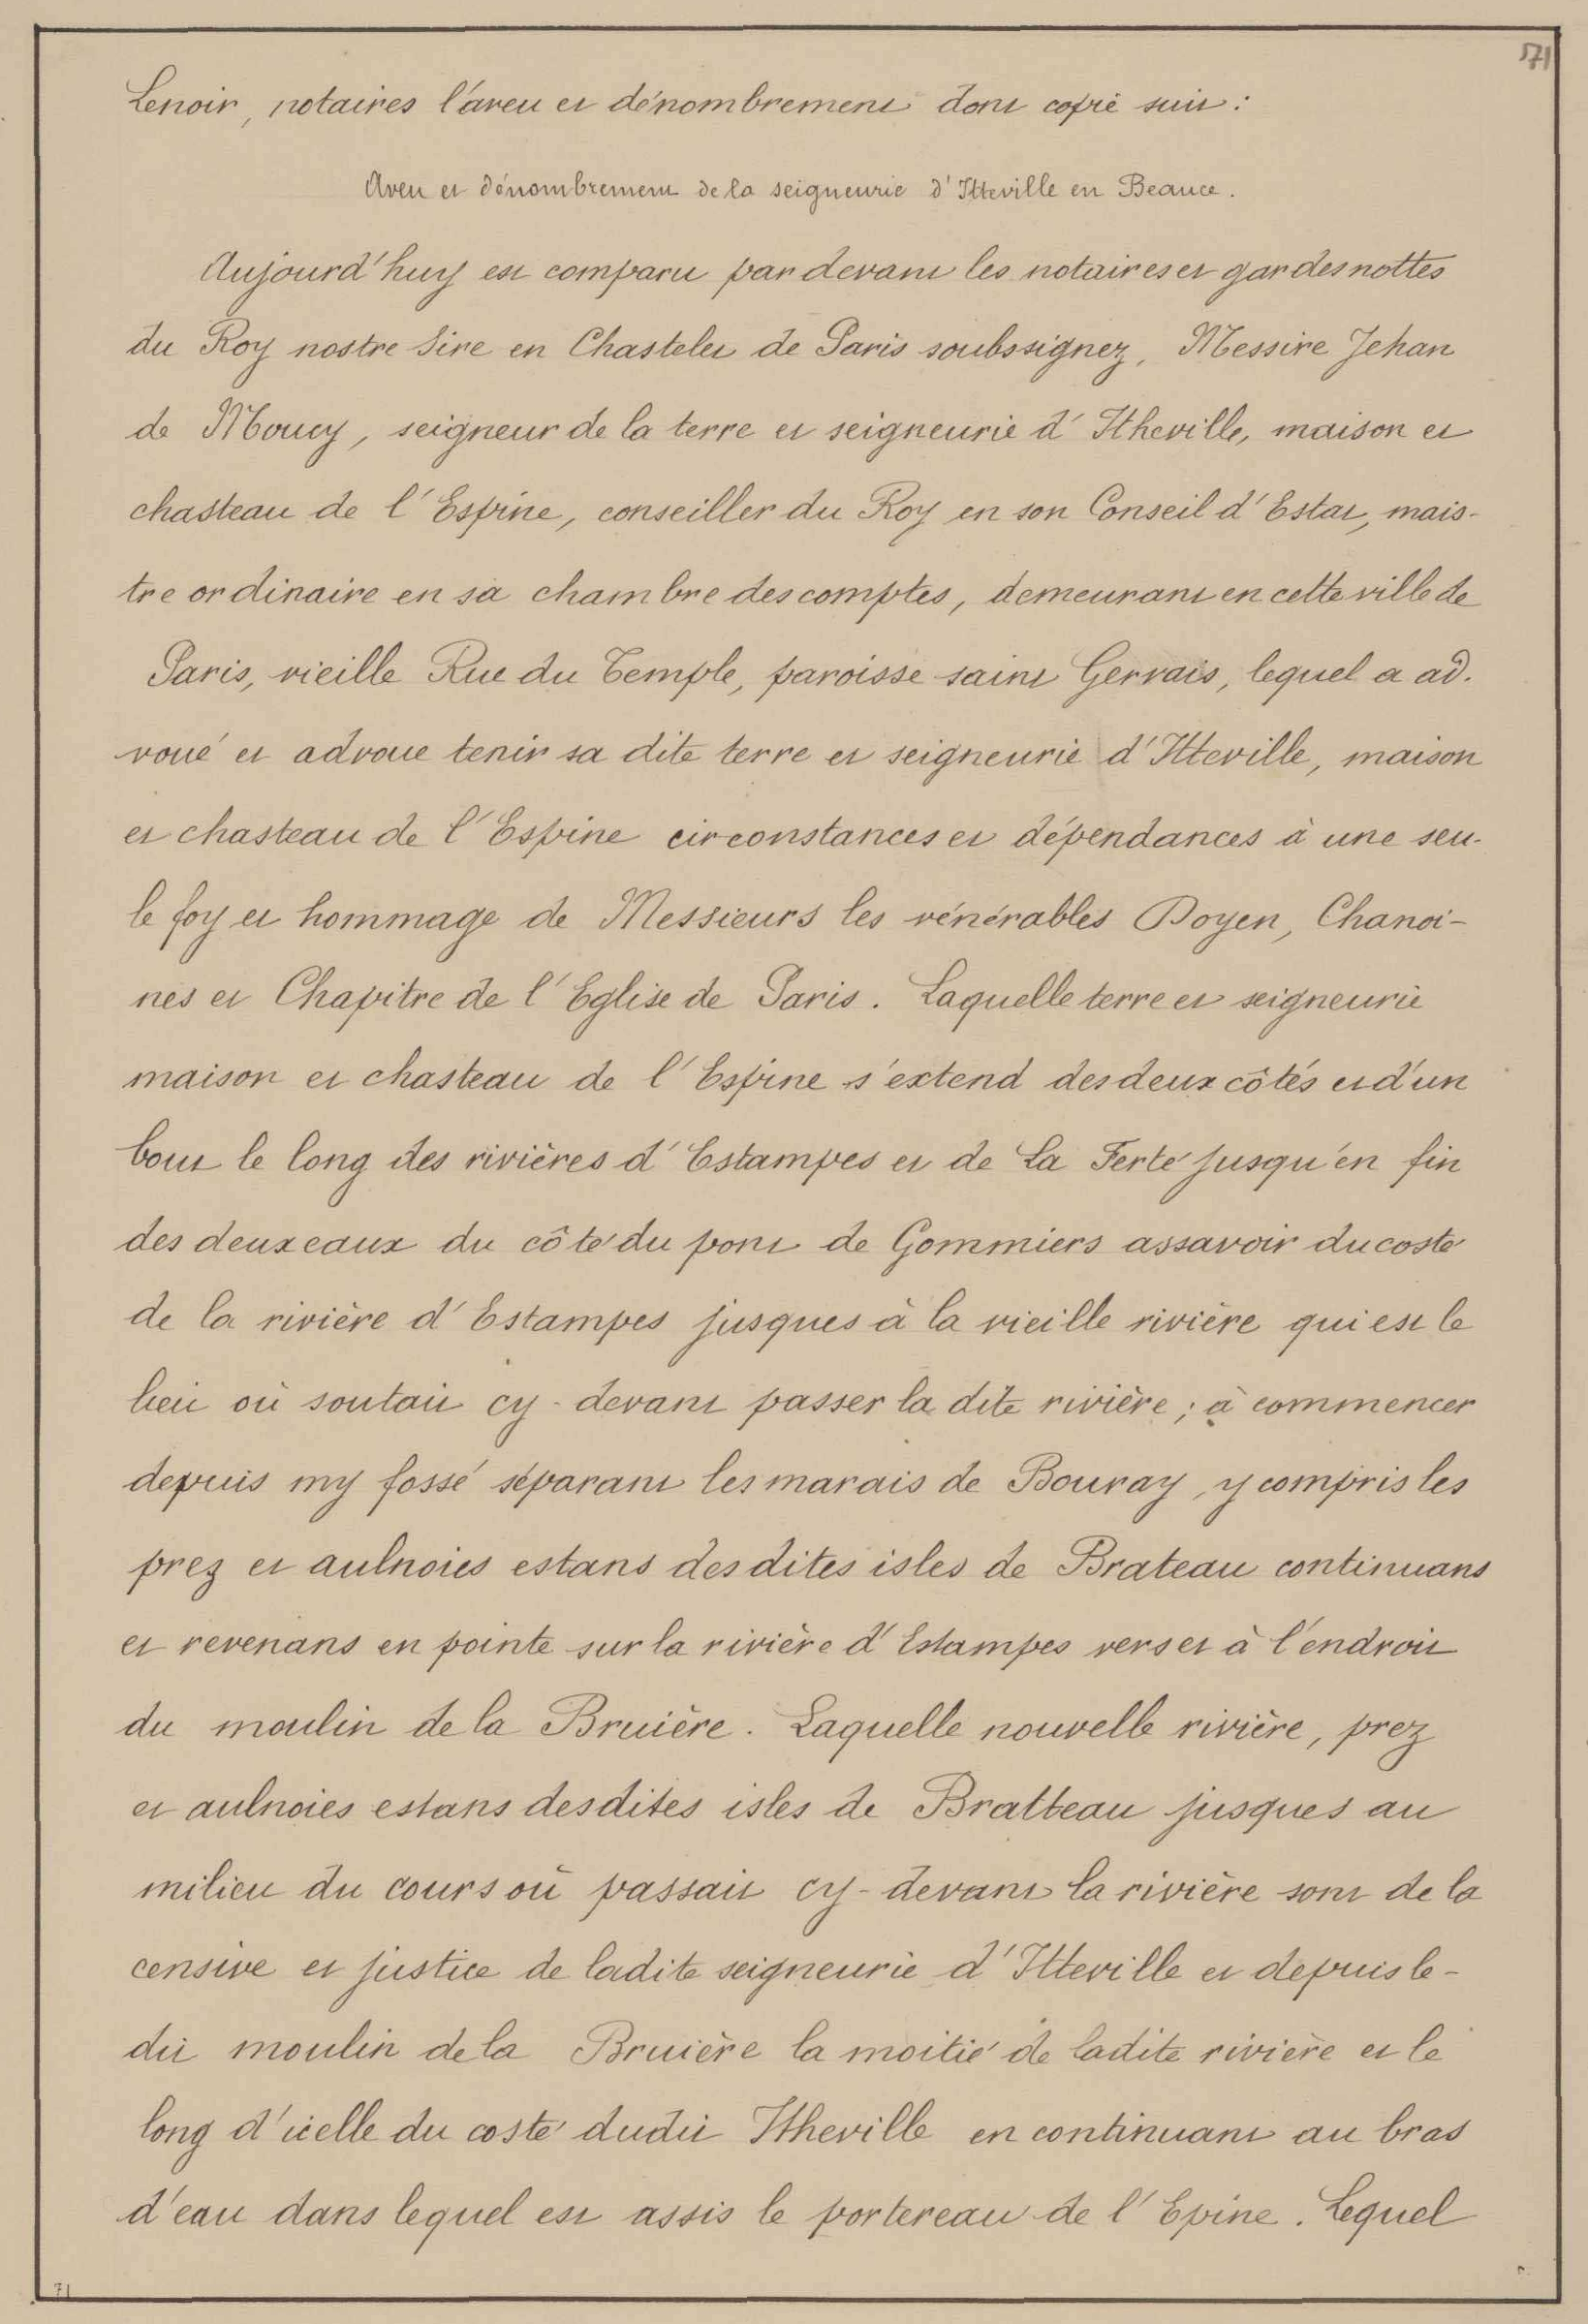 571
Lenoir, notaires l'aveu et dénombrement dont copie suit :
Aveu et dénombrement de la seigneurie d'Itteville en Beauce.
Aujourd'huy est comparu par devant les notaires et gardesnottes
du Roy nostre Sire en Chastelet de Paris soubssignez, Messire Jehan
de Moucy, seigneur de la terre et seigneurie d'Itheville, maison et
chasteau de l'Espine, conseiller du Roy en son Conseil d'Estat, mais-
tre ordinaire en sa chambre des comptes, demeurant en cette ville de
Paris, vieille Rue du Temple, paroisse saint Gervais, lequel a ad.
voué et advoue tenir sa dite terre et seigneurie d'Itteville, maison
et chasteau de l'Espine circonstances et dépendances à une seu-
le foy et hommage de Messieurs les vénérables Doyen, Chanoi-
nes et Chapitre de l'Eglise de Paris. Laquelle terre et seigneurie
maison et chasteau de l'Espine s'extend des deux côtés et d'un
bout le long des rivières d'Estampes et de La Ferté jusqu'en fin
des deux eaux du côté du pont de Gommiers assavoir du costé
de la rivière d'Estampes jusques à la vieille rivière qui est le
lieu où soulait cy-devant passer la dite rivière ; à commencer
depuis my fossé séparant les marais de Bouray, y compris les
prez et aulnoies estans desdites isles de Brateau continuans
et revenans en pointe sur la rivière d'Estampes vers et à l'endroit
du moulin de la Bruière. Laquelle nouvelle rivière, prez
et aulnoies estans desdites isles de Bratteau jusques au
milieu du cours où passait cy-devant la rivière sont de la
censive et justice de ladite seigneurie d'Itteville et depuis le-
dit moulin de la Bruière la moitié de ladite rivière et le
long d'icelle du costé dudit Itheville en continuant au bras
d'eau dans lequel est assis le portereau de l'Epine. Lequel
71